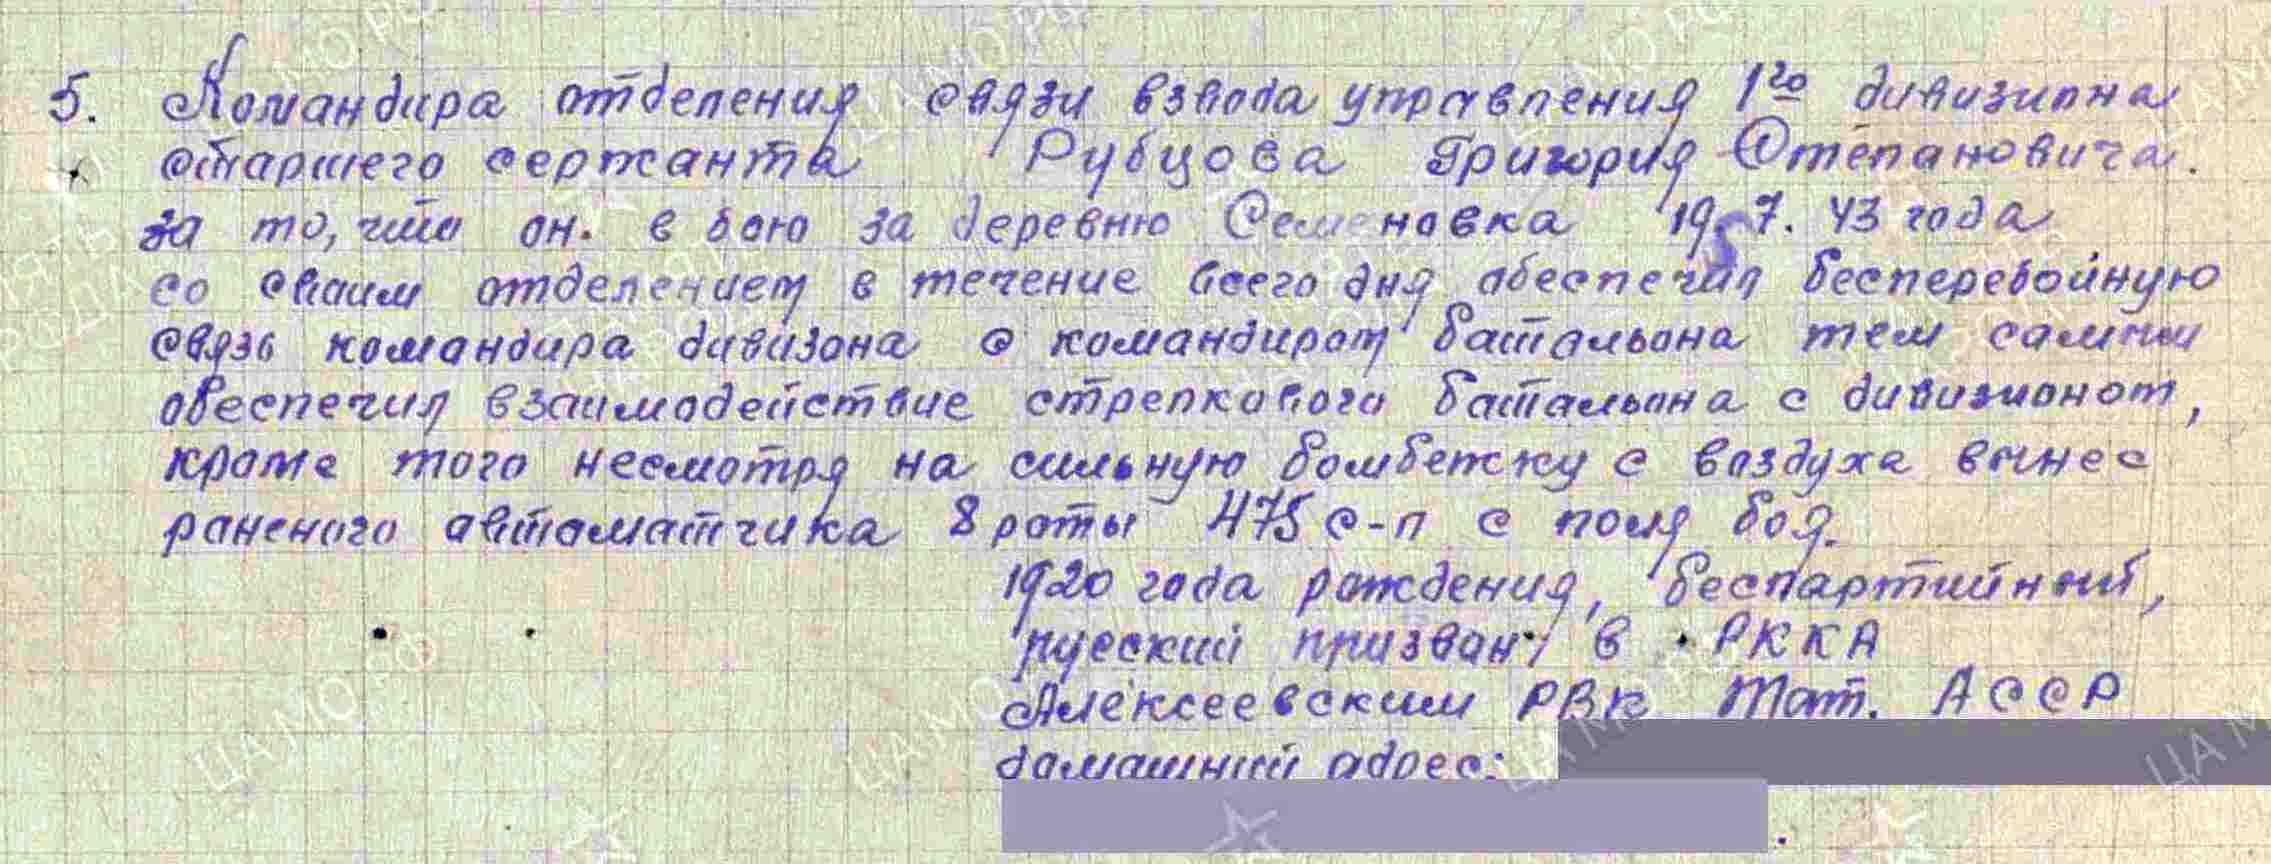 5. Командира отделения связи взвода управления 1го дивизиона
старшего сержанта Рубцова Григория Степановича.
за то, что он. в бою за деревню Семеновка 19.7.43 года
со своим отделением в течение всего дня обеспечил бесперебойную
связь командира дивизона с командиром батальона тем самым
обеспечил взаимодействие стрелкового батальона с дивизионом,
кроме того несмотря на сильную бомбежку с воздуха вынес
раненого автоматчика 8 роты 475 с-п с поля боя.
1920 года рождения, беспартийный,
русский призван в РККА
Алексеевским РВК Тат. АССР
домашний адрес: